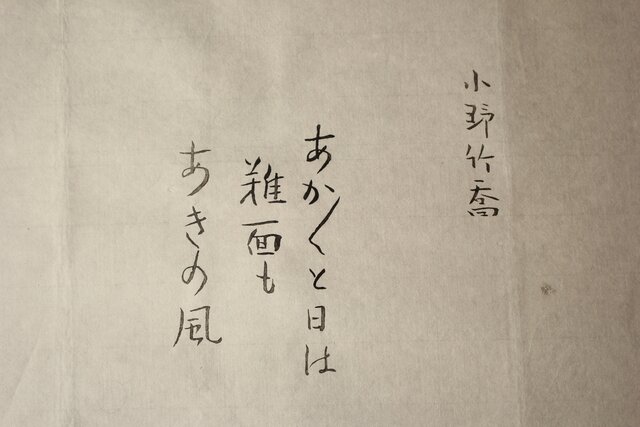 小野竹喬
あか〱と日は
難面も
あきの風